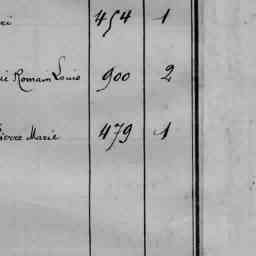 454 1
Romain Louis 900 2
Pierre Marie 479 1